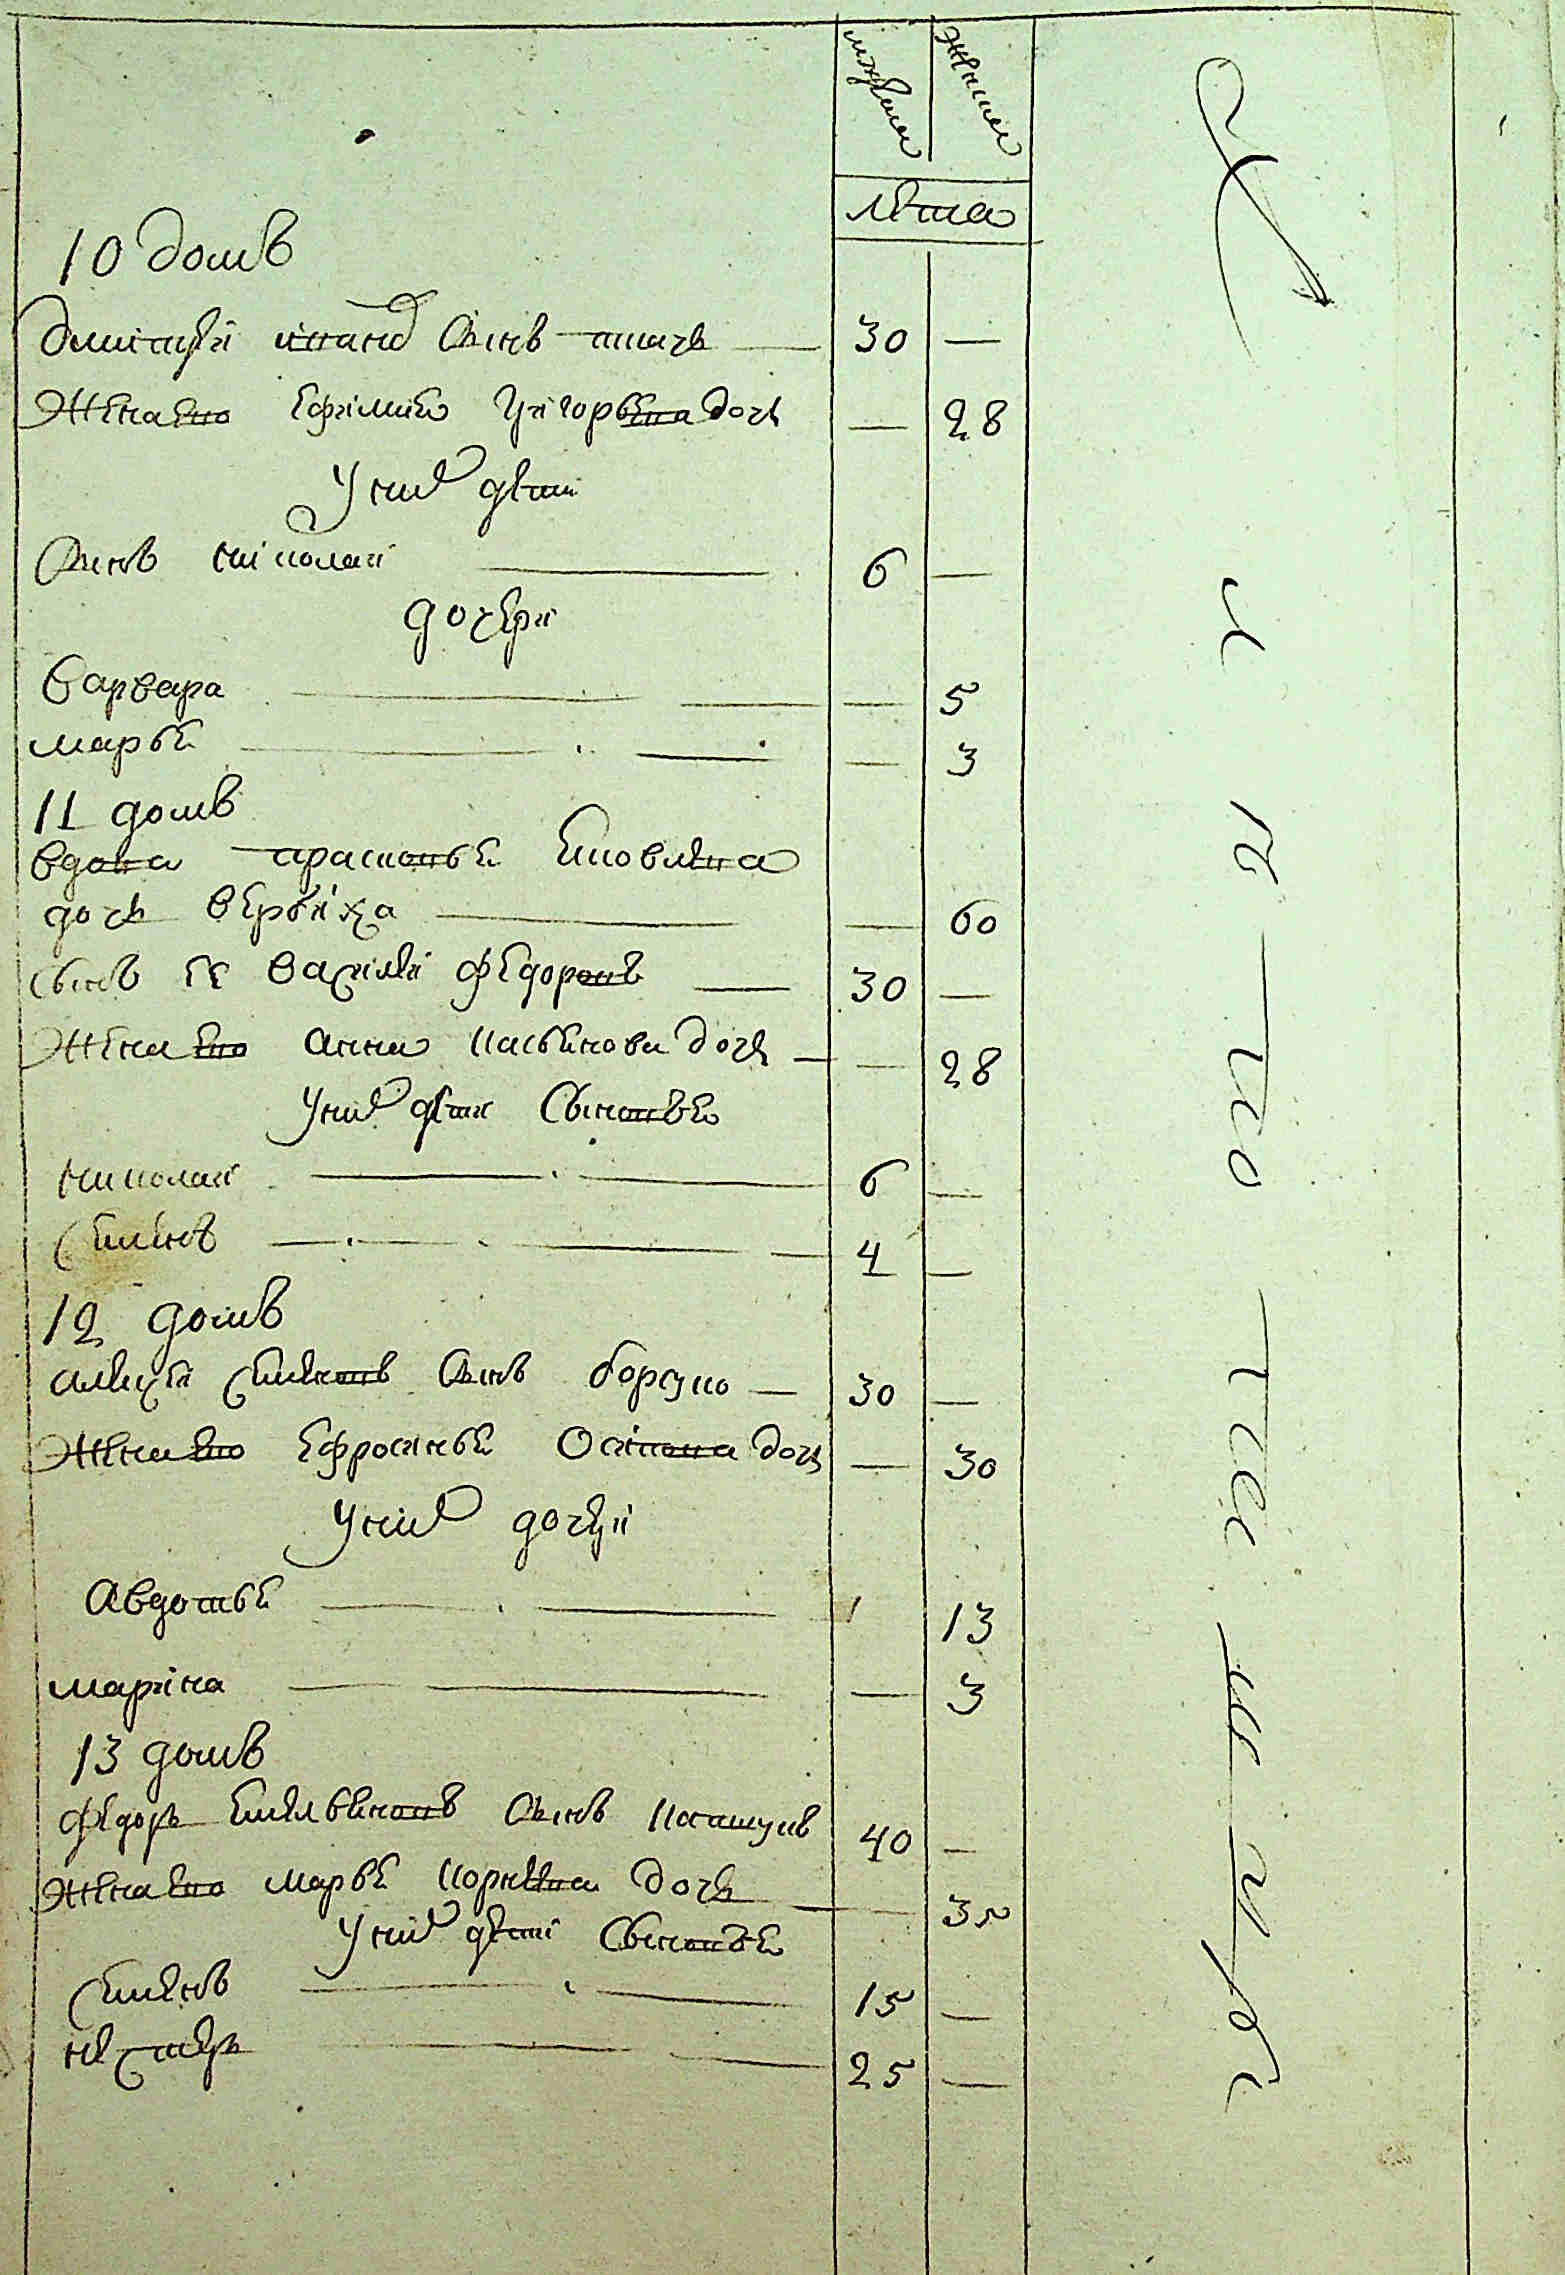 мужеска женска
лѣта
10 домъ
Дмитрѣй Иванов Сынъ ткачь — 30 —
Жена ево Ефимия Григорьева дочь — 28
У них дѣти
Сынъ Николай — 6 —
дочери
Варвара — — 5
Марья — — 3
11 домъ
вдова Прасковья Яковлева
дочь Вербиха — — 60
Сынъ ее Василий Федоровъ — 30 —
Жена ево Анна Касьянова дочь — — 28
У них дѣти Сыновья
Николай — 6 —
Семенъ — 4 —
12 домъ
Алексѣй Семеновъ Сынъ — 30 —
Жена ево Ефросинья Осипова дочь — 30
У них дочери
Авдотья — 13
Марина — — 3
13 домъ
Федоръ Емельяновъ Сынъ 40 —
Жена ево Марья Корнѣева дочь — 35
У них дѣти Сыновья
Семенъ — 15 —
Нестеръ — 25 —